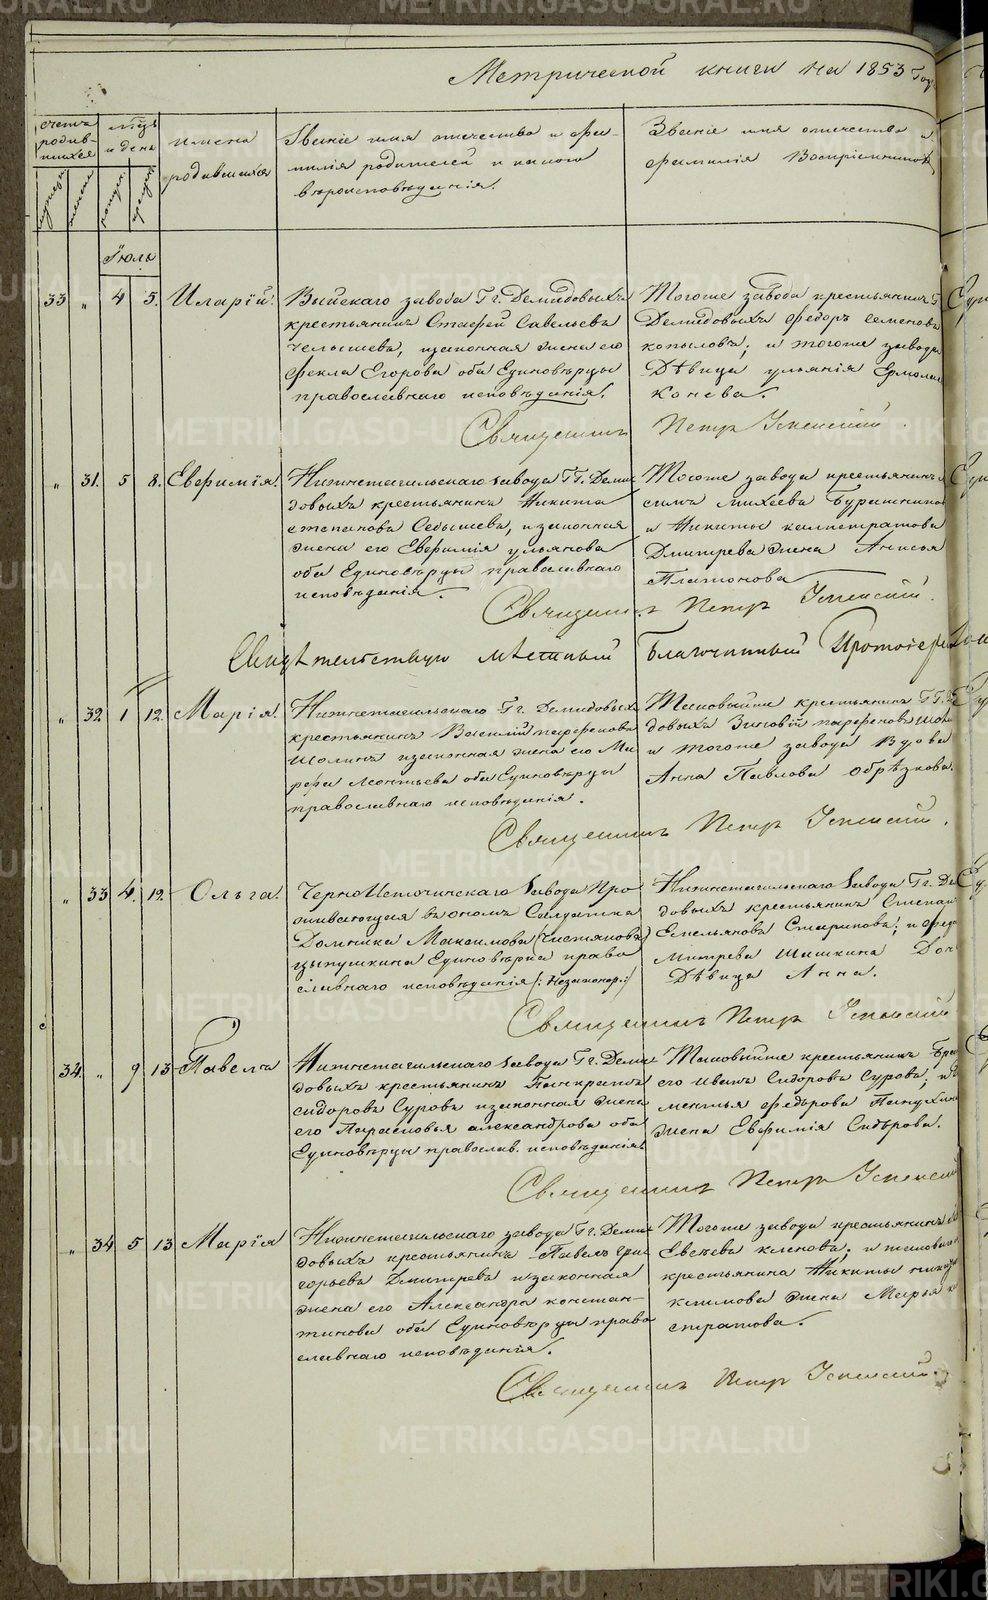 Метрической книги на 1853 Годъ
счетъ родив-
шихся
мѣсяцъ
и день
имена
родившихся
Званіе имя отечество и фа-
милія родителей и какого
вѣроисповѣданія.
Званіе имя отечество и
фамилія Воспріемниковъ
Іюль
33 " 4 5. Иларій.
Выйскаго завода Гг. Демидовыхъ
крестьянинъ Стафей Савельевъ
Челышевъ, изаконная жена его
Фекла Егорова оба Единовѣрцы
православнаго исповѣданія.
Тогоже завода крестьянинъ Г
Демидовыхъ Федоръ Семеновъ
копыловъ; и тогоже завода
Дѣвица ульянія Ермолае
Конева.
Священникъ Петръ Успенскій.
" 31. 5 8. Евфимія.
Нижнетагильскаго завода ГГ. Деми
довыхъ крестьянинъ Никита
степановъ Седышевъ, изаконная
жена его Евфимія ульянова
оба Единовѣрцы православнаго
исповѣданія.
Тогоже завода крестьянинъ
симъ михеевъ
и Никиты калистратова
Дмитрева жена Анисья
Платонова
Священникъ Петръ Успенскій.
Свидѣтельствую мѣстный Благочинный Протоіерей
" 32. 1 12. Марія.
Нижнетагильскаго Гг. Демидовыхъ
крестьянинъ Василій парфеновъ
Шолинъ изаконная жена его Ма
рфа Леонтьева оба Единовѣрцы
православнаго исповѣданія.
Таковыйже крестьянинъ ГГ. Де
довыхъ Зиновій парфеновъ Шол
и тогоже завода Вдова
Анна Павлова обрѣзкова.
Священникъ Петръ Успенскій.
" 33 4. 12. Ольга.
ЧерноИсточинскаго Завода Про
живающая въ ономъ Салдатка
Домника Максимова (Чистякова)
цыпушкина Единовѣрка право
славнаго исповѣданія (: Незаконнор.:)
Нижнетагильскаго Завода Гг. Де
довыхъ крестьянинъ Степан
Емельяновъ Стариковъ; и федо
митрева Шишкина Доч
Дѣвица Анна.
Священникъ Петръ Успенскій
34. " 9 13 Павелъ
Нижнетагильскаго Завода Гг. Деми
довыхъ крестьянинъ Панкратъ
сидоровъ Суровъ изаконная жена
его Парасковья александрова оба
Единовѣрцы православ. исповѣданія
Таковыйже крестьянинъ Брат
его иванъ Сидоровъ Суровъ; и
ментья федорова Пичухина
жена Евфимія Сидорова.
Священникъ Петръ Успенскій
" 34 5 13 Марія
Нижнетагильскаго завода Гг. Деми
довыхъ крестьянинъ Павелъ гри
горьевъ Дмитревъ изаконная
жена его Александра констан-
тинова оба Единовѣрцы право
славнаго исповѣданія.
Тогоже завода крестьянинъ
Евсѣевъ кленовъ; и таковаго
крестьянина Никиты
климова жена Марья
стратова.
Священникъ Петръ Успенскій.